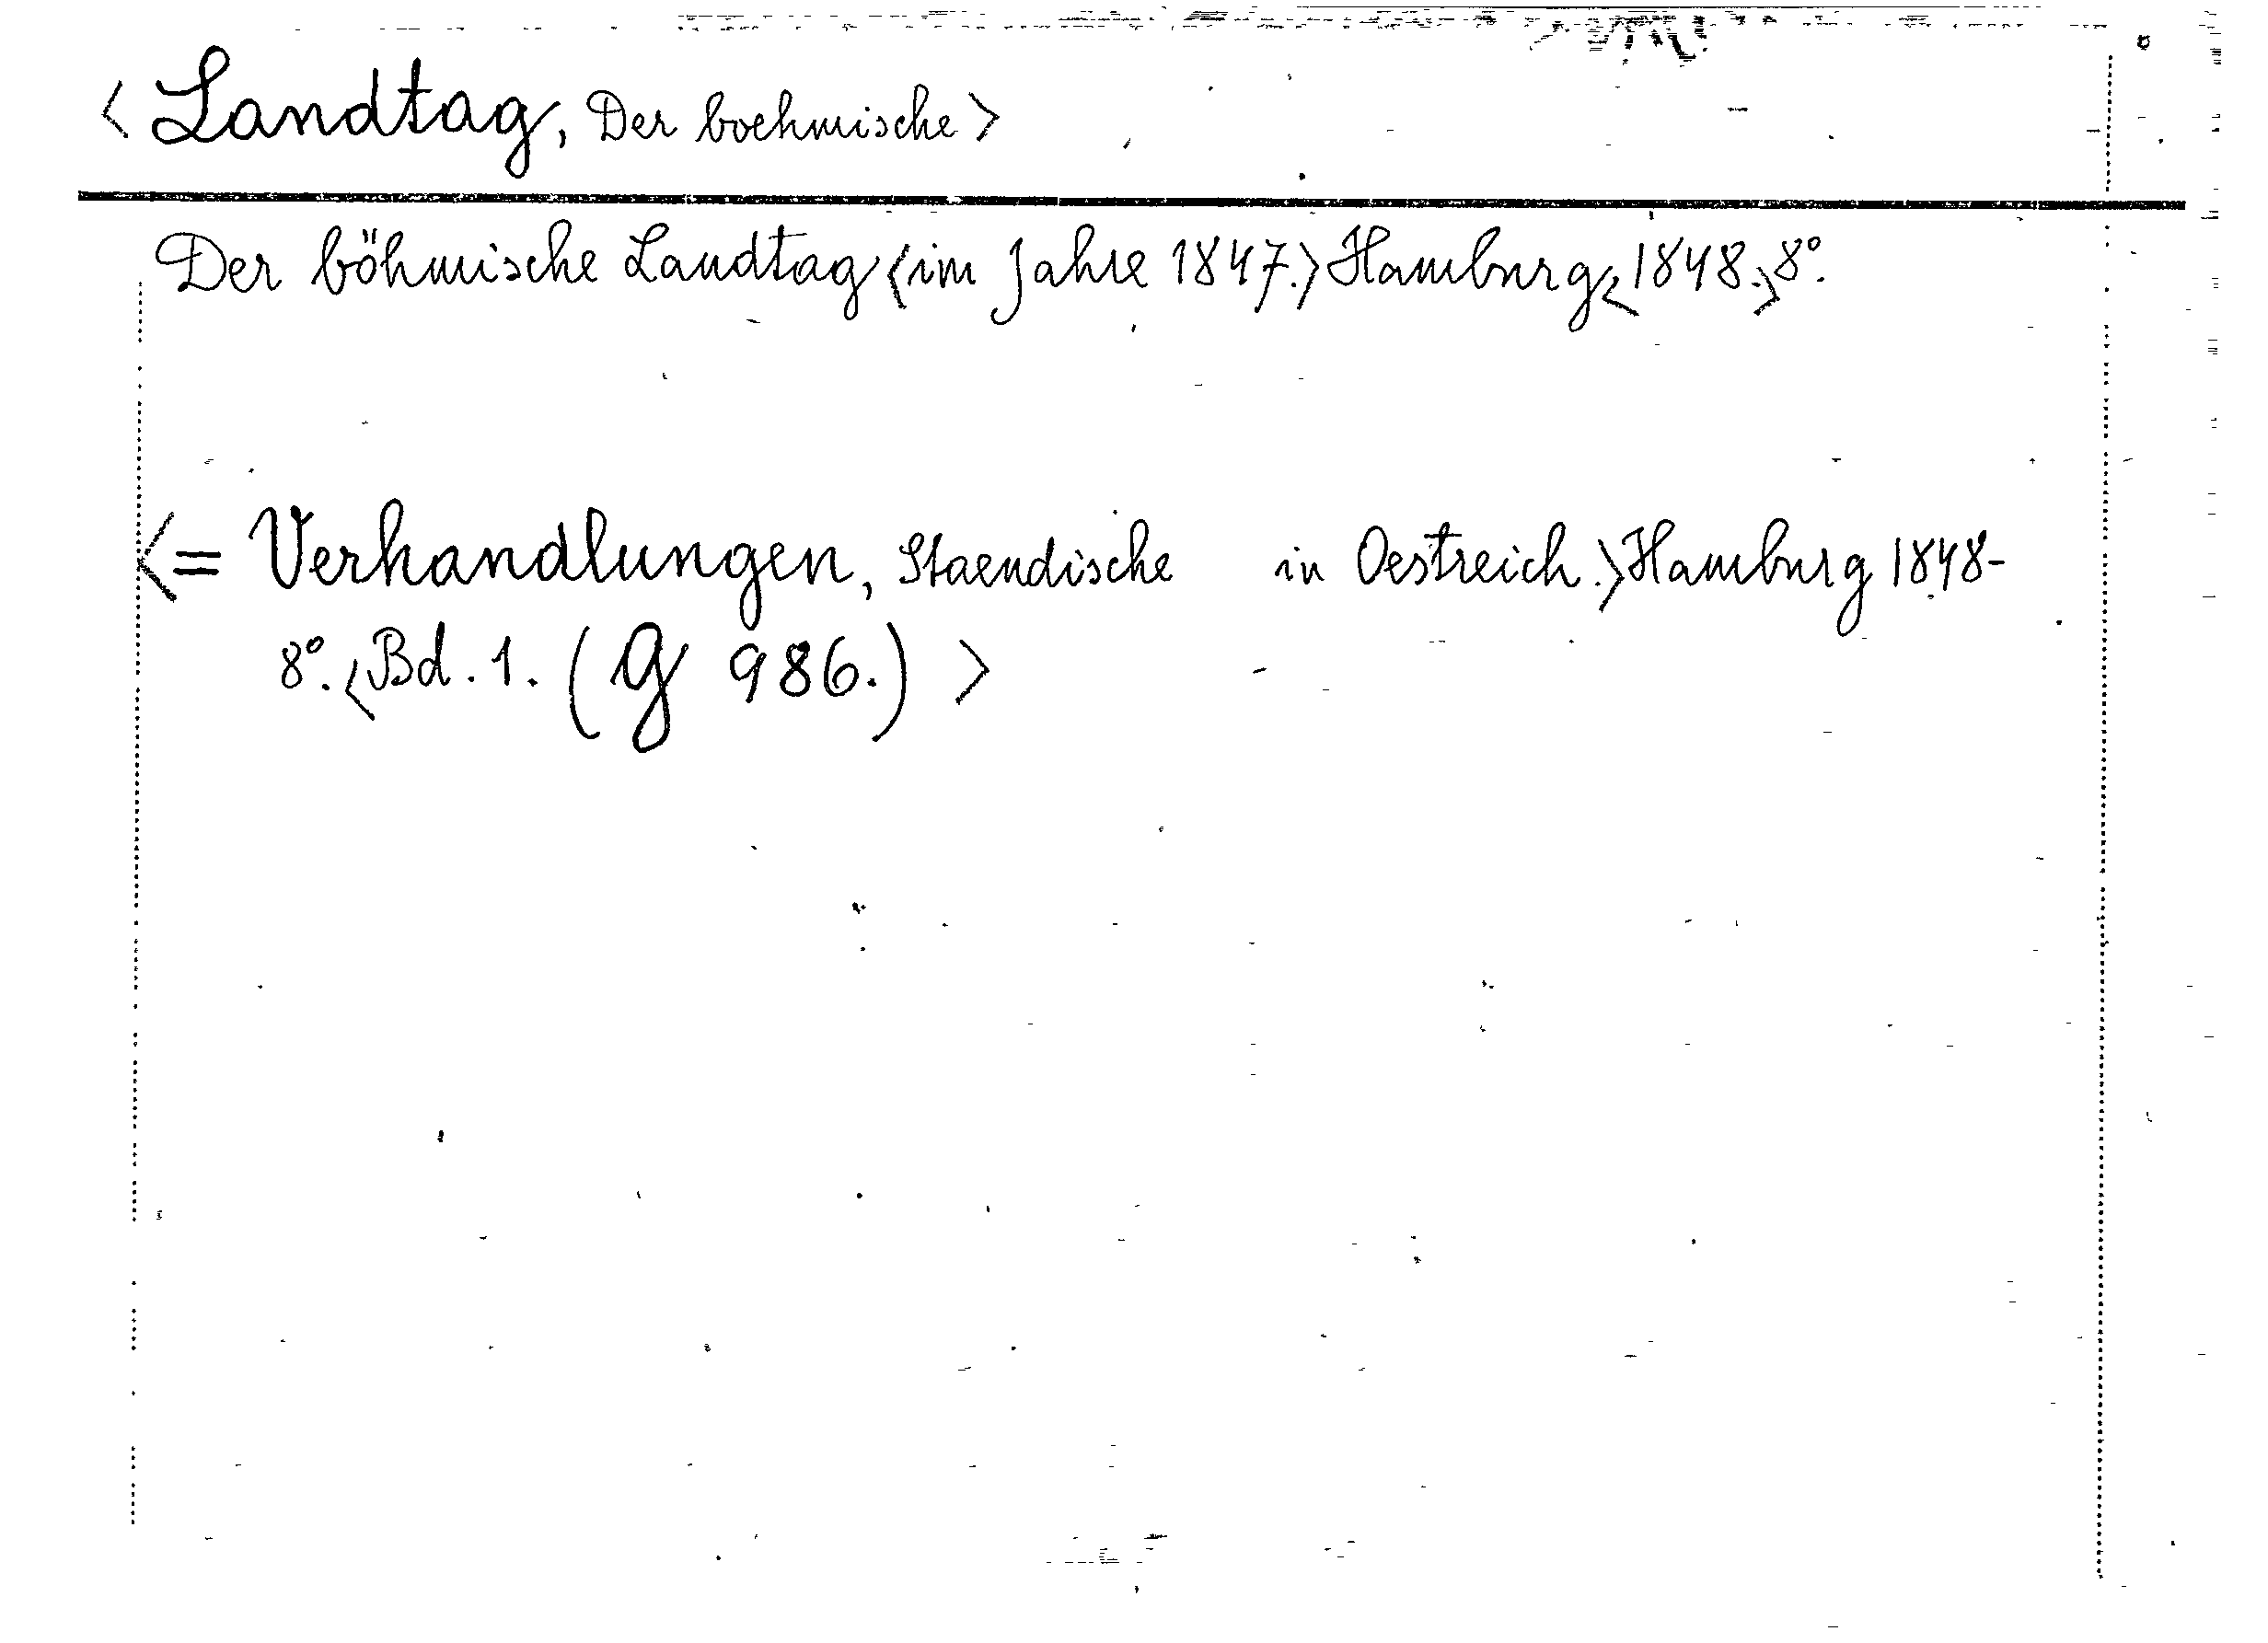 < Landtag, Der boehmische >
Der böhmische Landtag <im Jahre 1847.> Hamburg <1848.> 8°.
<= Verhandlungen, Staendische in Oestreich.> Hamburg 1848-
8°. <Bd. 1. (G 986.) >